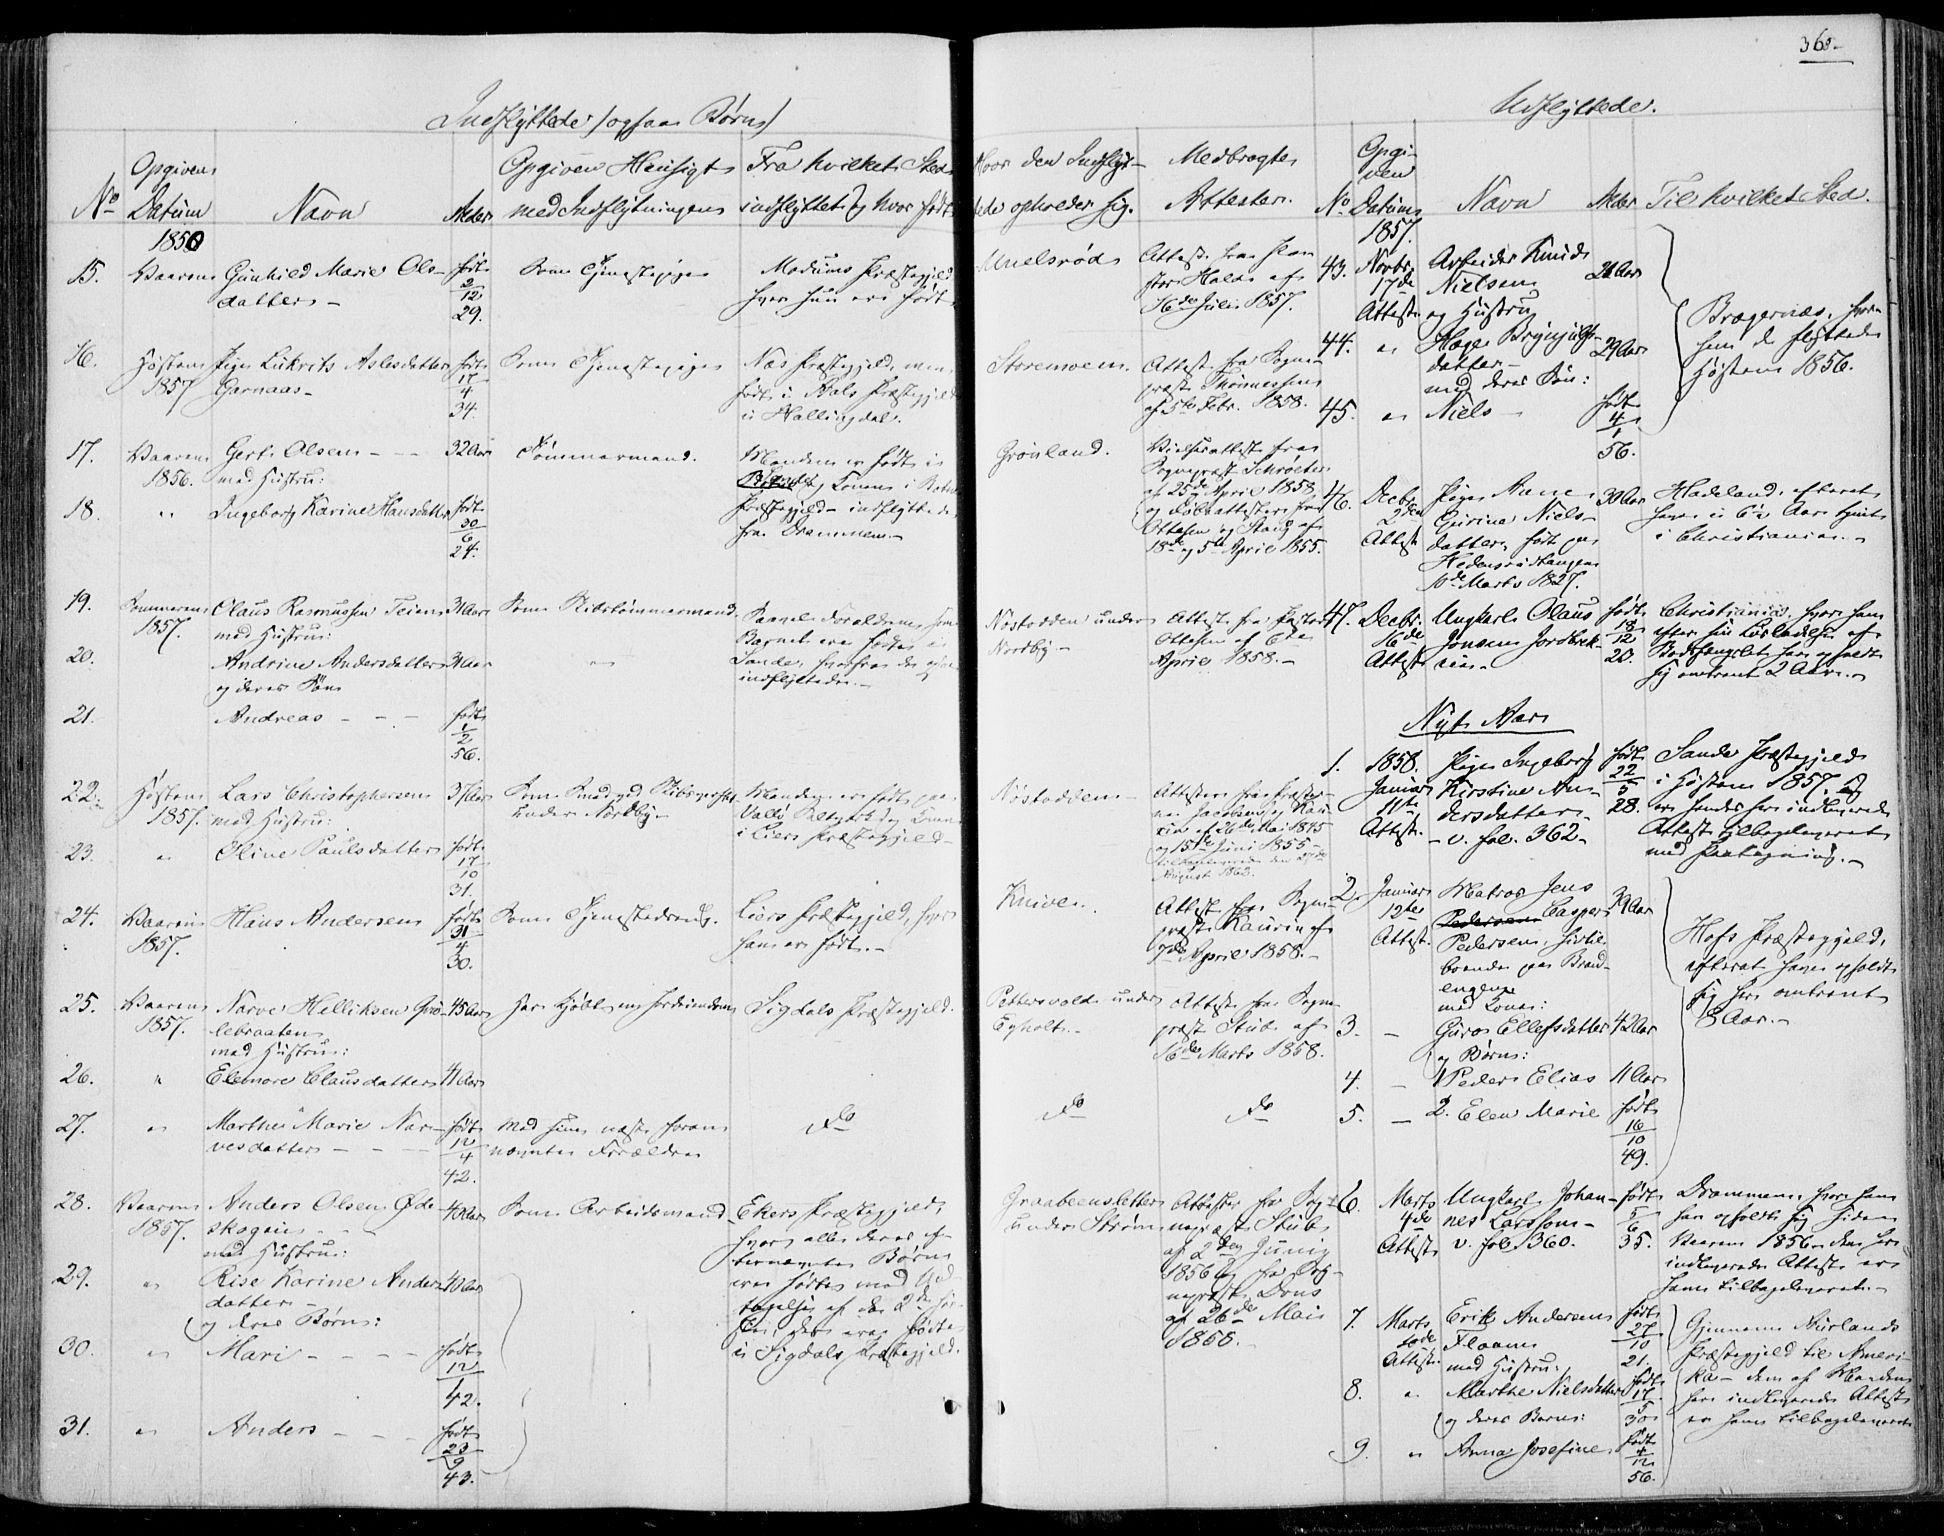 365.
Indflyttede (ogsaa Børn)
Opgiven
No Datum
1856
Navn
Alder
Opgiven Hensigt
med Indflytningen
Fra hvilket Sted
indflyttet og hvor født
Hvor den Indflyt-
tede opholder sig.
Medbragte
Attester.
15. Vaaren
Gunhild Marie Ols-
datter –
født
2
12
29.
Som Tjenestepige
Modums Præstegjeld
hvor hun er født
Attest fra
af
16de Juli 1857.
16. Høsten
1857
Pige Aslesdatter
Garnaas –
født
17
4
34.
Som Tjenestepige
Næs Præstegjeld, men
født i Aals Præstegjeld
i Hallingdal.
Storemoen.
Attest fra Sogne-
præst Thønnessen
af 5te Febr. 1858.
17. Vaaren
1856.
Gert Olsen – – –
med Hustru:
32 Aar
Tømmermand.
Manden er født i
Konen i
Præstegjeld – indflyttede
fra Drammen. –
Grønland.
Vielsesattest fra
Sognepræst Schrøeter
af 25de April 1858
og Daabsattester fra
Ottesen og Stang af
18de og 5te April 1855.
18. "
Ingeborg Karine Hansdatter
født
30
6
24.
19. Sommeren
1857.
Claus Rasmussen Teien
med Hustru:
31 Aar
Som Skibstømmermand.
Saavel Forældrene som
Barnet ere fødte i
Sande, hvorfra de
indflyttede. –
Nøstodden under
Nordby –
Attest fra Pastor
Ottesen af 6te
April 1858. –
20.
Andrine Andersdatter
og deres Søn
31 Aar
"
21.
Andreas – – –
født
1
2
56.
22. Høsten
1857.
Lars Christophersen
med Hustru:
37 Aar
Som
under Nordby –
Manden er født paa
Vallø Saltværk og Konen
i Liers Præstegjeld –
Nøstodden –
Attester fra Præster-
ne Jacobsen og Kau-
rin af 26de Mai 1845
og 15de Juni 1855 –
tilbageleveret den 27de
August 1863.
23. "
Oline Paulsdatter
født
17
10
31.
24. Vaaren
1857.
Hans Andersen
født
31
4
30.
Som Tjenestedreng.
Liers Præstegjeld, hvor
han er født. –
Kniven.
Attest fra Sogne-
præst Kaurin af
7de April 1858. –
25. Vaaren
1857.
Narve Helliksen
lebraaten
med Hustru:
45 Aar
Har kjøbt en Jordeiendom
Sigdals Præstegjeld.
Pettersvold under
Egholt. –
Attest fra Sogne-
præst Stub af
16de Marts 1858.
26. "
Elenore Clausdatter
41 Aar
27. "
Marthe Marie Nar-
vesdatter – – –
født
12
4
42.
Med sine næst foran
nævnte Forældre
Do
Do
Do
28. Vaaren
1857.
Anders Olsen Øde-
skogen – –
med Hustru:
40 Aar
Som Arbeidsmand
Ekers Præstegjeld,
hvor alle disse ef-
ternævnte Børn
ere fødte med Und-
tagelse af de 2de før-
ste, der ere fødte
i Sigdals Præstegjeld.
Graabeensletten
under Strøm
Attester fra Sog-
nepræst Stub
af 2den Juni
1856 og fra Sog-
nepræst Dons
af 26de Mai
1858. –
29. "
Rise Karine Anders-
datter –
og deres Børn:
40 Aar
30. "
Mari – – – –
født
12
1
42.
31. "
Anders – – –
født
23
9
43.
Udflyttede.
No
Opgi-
ven
Datum
1857.
Navn
Alder
Til hvilket Sted.
43. Novbr.
17de
Attest.
Arbeider Knud
Nielsen
og Hustru
26 Aar
Bragernæs, hvor-
hen de flyttede
Høsten 1856.
44. "
Brynjulfs-
datter –
med deres Søn:
29 Aar
45. "
Niels –
født
4
1
56.
46. Decbr.
2den
Attest
Pige Anne
Gurine Niels-
datter, født paa
Hedensrudtangen
10de Marts 1827.
30 Aar
Hadeland, efterat
have i 6½ Aar tjent
i Christiania. –
47. Decbr.
16de
Attest
Ungkarl Olaus
Jonsen Jordbræk
–
født
18
12
20.
Christiania, hvor han
efter sin Løsladelse af
Bodsfængslet har opholdt
sig omtrent 2 Aar. –
Nyt Aar
1. 1858.
Januar
11te
Attest.
Pige Ingeborg
Kirstine An-
dersdatter –
– v. fol. 362 –
født
22
5
28.
Sande Præstegjeld
i Høsten 1857. Og
er hendes her indleverede
Attest tilbageleveret
med Paategning. –
2. Januar
12te
Attest.
Matros Jens
Pedersen Casper
Pedersen, hidtil
boende paa Brand-
engen
med Kone:
39 Aar
Hofs Præstegjeld,
efterat have opholdt
sig her omtrent
8 Aar. –
3. –
Guro Ellefsdatter
og Børn:
42 Aar
4. –
1 Peder Elias
11 Aar
5. –
2. Elen Marie
født
16
10
49.
6. Marts
4de
Attest
Ungkarl Johan-
nes Larssen –
v. fol. 360.
født
5
6
35.
Drammen, hvor han
har opholdt sig siden
Vaaren 1856 – den her
indleverede Attest er
ham tilbageleveret. –
7. Marts
Attest.
Erik Andersen
Flaam
med Hustru:
født
27
10
21.
Gjennem Aurlands
Præstegjeld til Ameri-
ka – den af Manden
her indleverede Attest
er ham tilbageleveret
8. "
Marthe Nielsdatter
og deres Barn:
født
17
5
30
9. "
Anna Josefine
født
4
12
56.